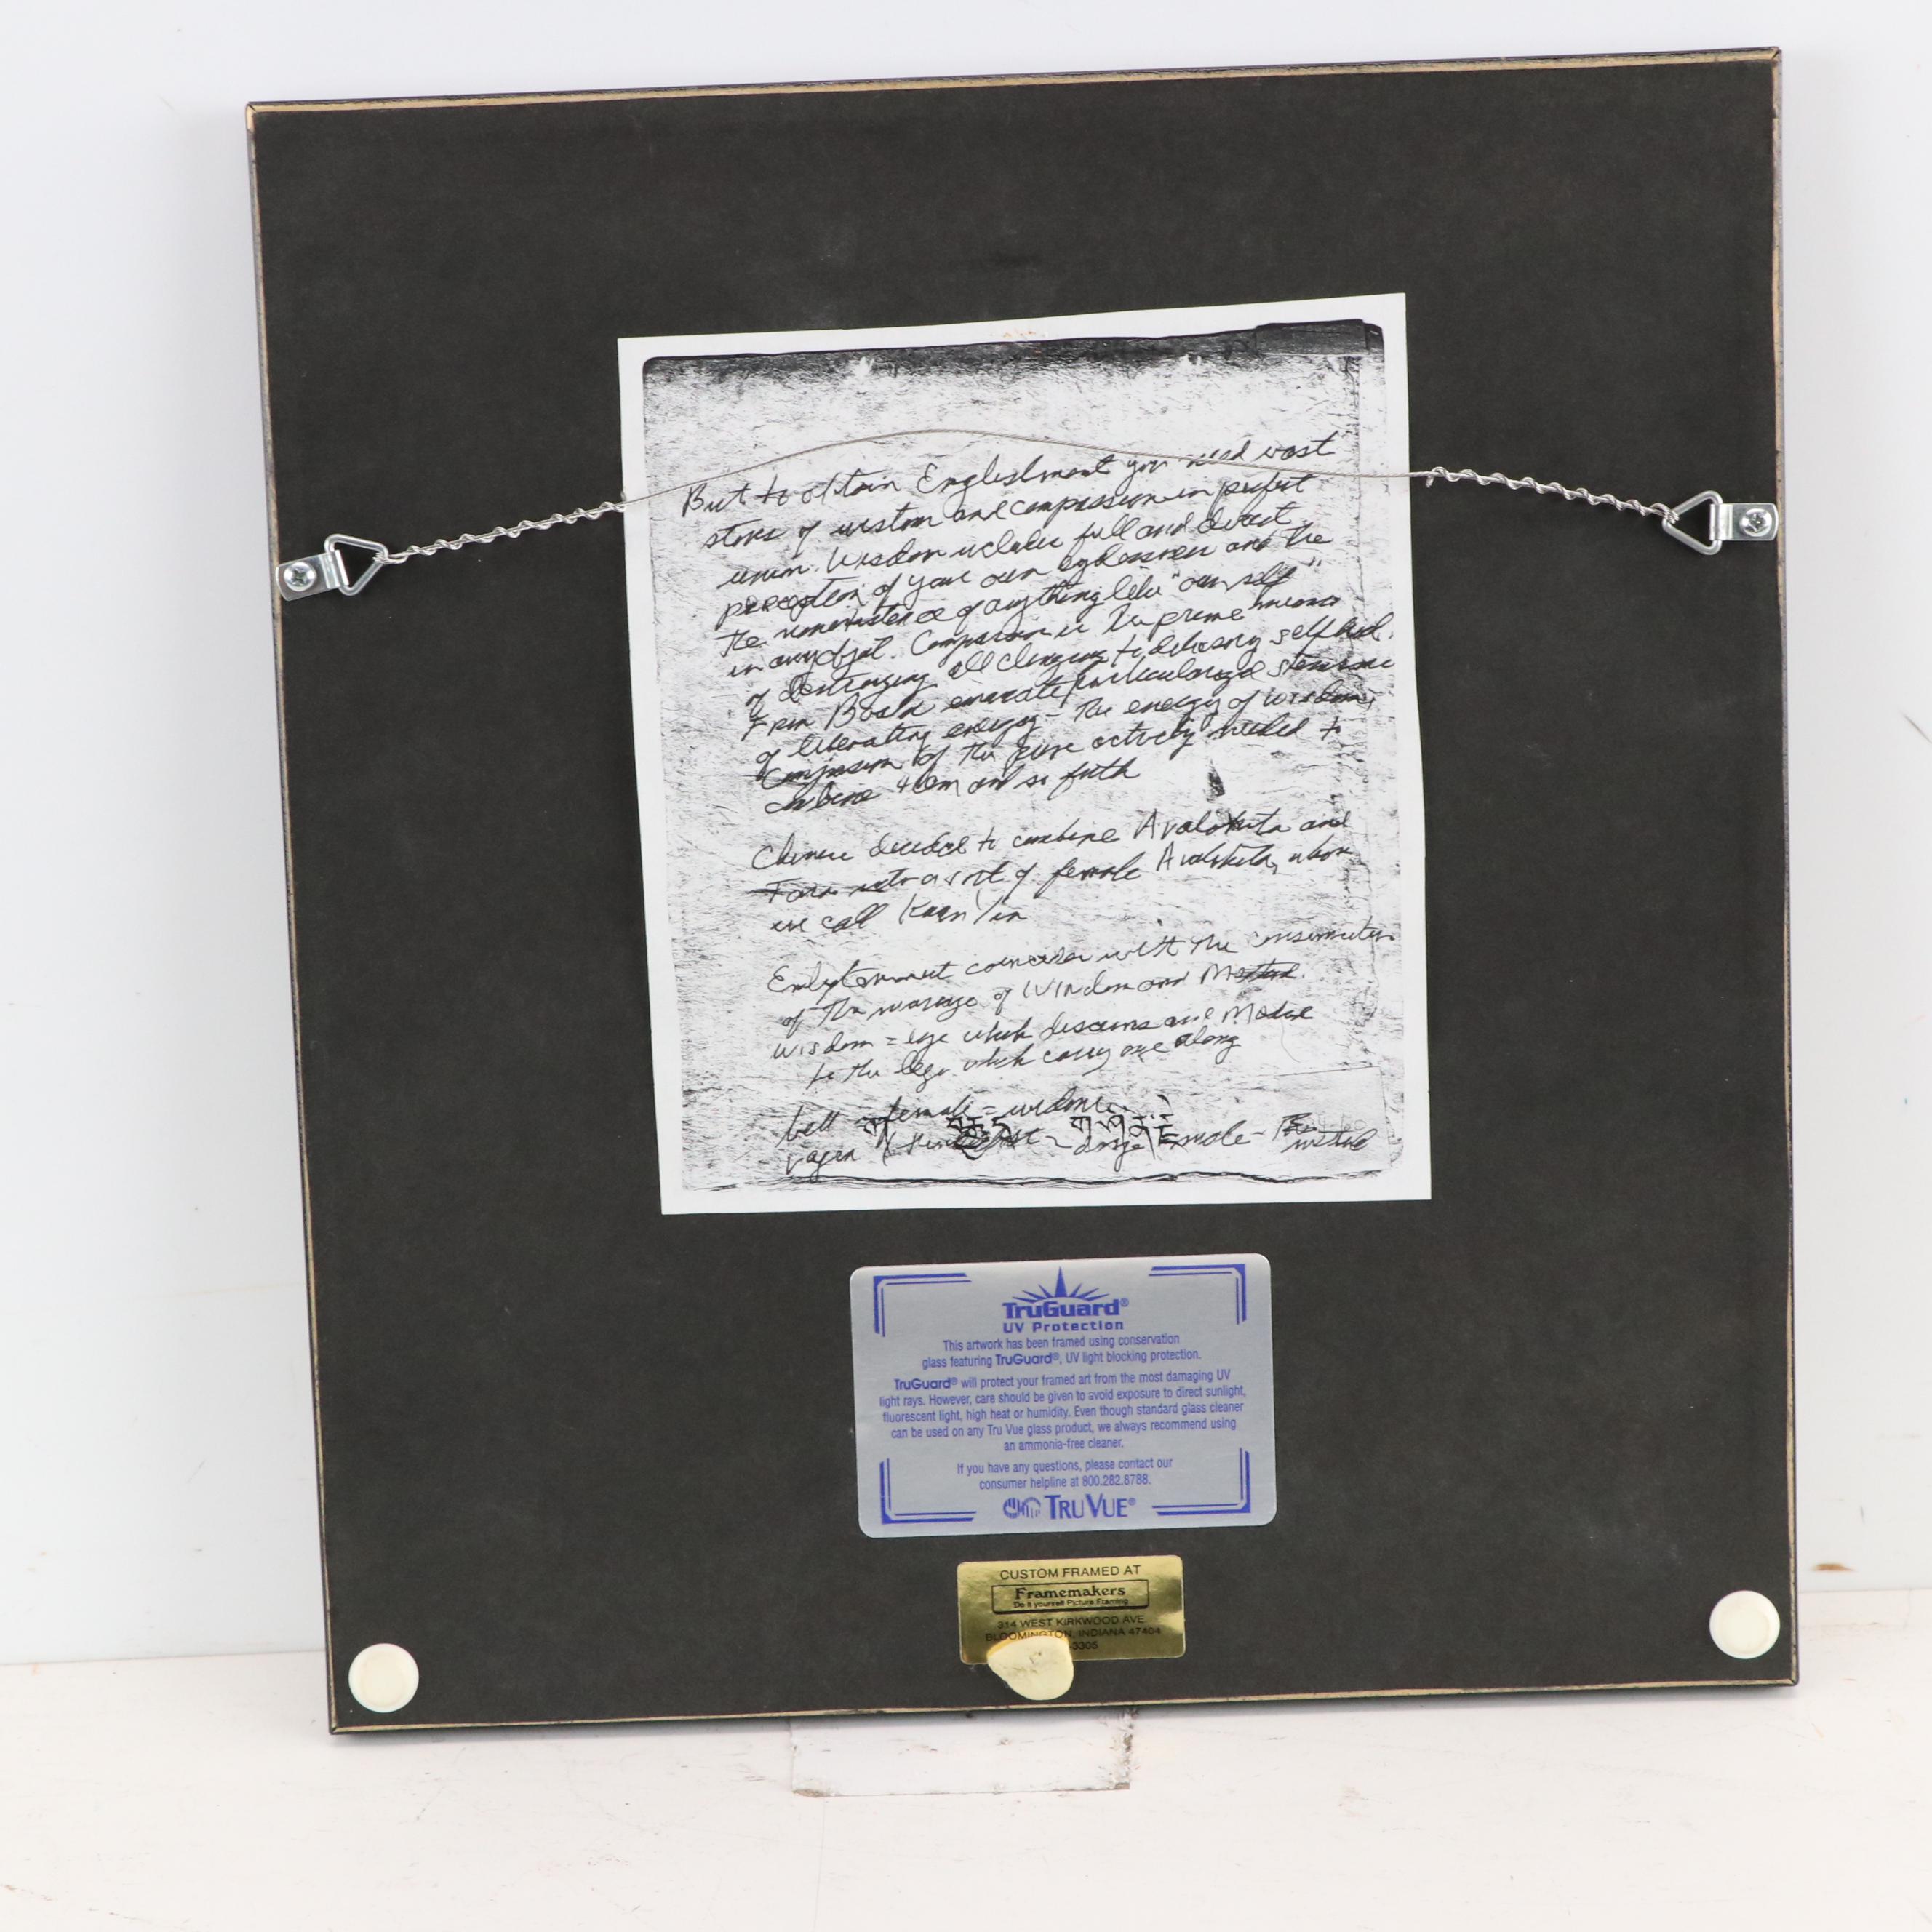 But to obtain Englishment you need vast
stores of wisdom and compassion in perfect
union. Wisdom includes full and direct
perception of your own egolessness and the
the nonexistence of anything like "own self"
in any object. Compassion is the prime means
of destroying all clinging to delusory selfhood.
From emanate particularized streams
of liberating energy - The energy of wisdom,
Compassion of the pure activity needed to
combine them and so forth
Chinese decided to combine Avalokita and
Tara into a sort of female Avalokita, whom
we call Kuan Yin
Enlightenment coincides with the consummation
of the marriage of Wisdom and
wisdom = eye which discerns and
to the legs which carry one along
bell = female = wisdom
vajra male -
TruGuard®
UV Protection
This artwork has been framed using conservation
glass featuring TruGuard®, UV light blocking protection.
TruGuard® will protect your framed art from the most damaging UV
light rays. However, care should be given to avoid exposure to direct sunlight,
fluorescent light, high heat or humidity. Even though standard glass cleaner
can be used on any Tru Vue glass product, we always recommend using
an ammonia-free cleaner.
If you have any questions, please contact our
consumer helpline at 800.282.8788.
TRU VUE®
CUSTOM FRAMED AT
Framemakers
Do it yourself Picture Framing
314 WEST KIRKWOOD AVE
BLOOMINGTON, INDIANA 47404
-3305